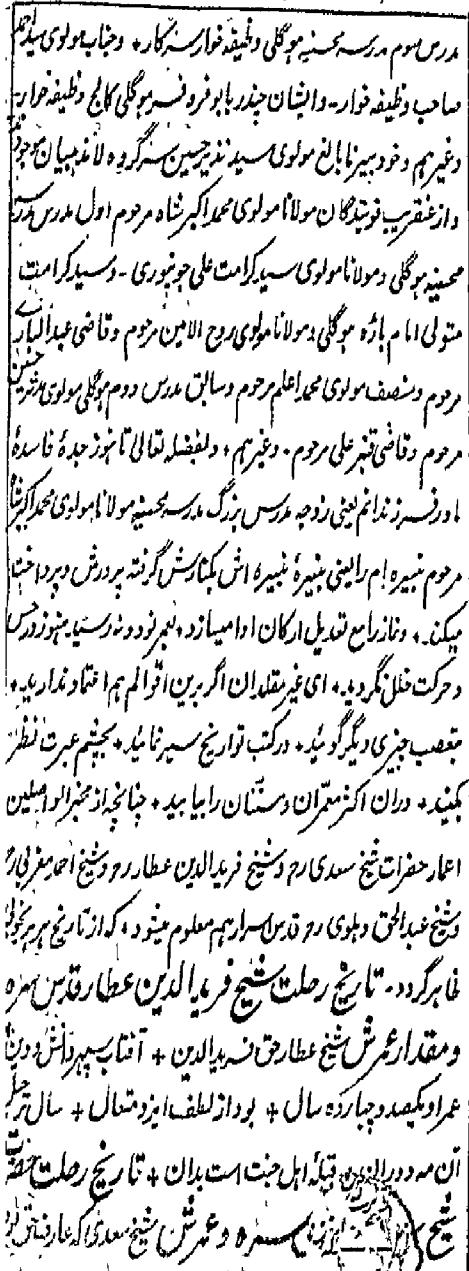 مدرس سوم مدرسہ محسنیہ ہوگلی وظیفہ خوار سرکار + وجناب مولوی سید احمد
صاحب وظیفہ خوار - والیشان چندر بابو فروفسر ہوگلی کالج وظیفہ خوار -
وغیرہم وخود سپر نابالغ مولوی سید نذیر حسین سرگروہ لامذہبیان موجود
واز عنقریب فوتیدگان مولانا مولوی محمد اکبر شاہ مرحوم اول مدرس مدرسہ
محسنیہ ہوگلی ومولانا مولوی سید کرامت علی جونپوری - وسید کرامت
متولی امام باڑہ ہوگلی ومولانا مولوی روح الامین مرحوم وقاضی عبدالباری
مرحوم ومنصف مولوی محمد اعلم مرحوم وسابق مدرس دوم ہوگلی مولوی
مرحوم وقاضی قنبر علی مرحوم - وغیرہم + وبفضلہ تعالی تا ہنوز جدۂ فاسدۂ
مادر فرزندانم یعنی زوجہ مدرس بزرگ مدرسہ محسنیہ مولانا مولوی محمد اکبر شاہ
مرحوم نبیرہ ام را یعنی نبیرۂ نبیرہ اش بکنارش گرفتہ پرورش وپرداخت
میکند + ونماز را مع تعدیل ارکان ادا میسازد + بعمر نود ونہ رسید ہنوز در حس
وحرکت خلل نگردید + ای غیر مقلدان اگر برین اقوالم ہم اعتماد ندارید +
بتعصب چیزی دیگر گوئید + در کتب تواریخ سیر نمائید + بچشم عبرت نظر
بکنید + دران اکثر معمران ومسنان را بیابید + چنانچہ از مخبر الواصلین
اعمار حضرات شیخ سعدی رح وشیخ فرید الدین عطار رح وشیخ احمد مغربی رح
وشیخ عبدالحق دہلوی رح قدس اسرارہم معلوم میشود + کہ از تاریخ ہر یر بخوبی
ظاہر گردد - تاریخ رحلت شیخ فرید الدین عطار قدس سرہ
ومقدار عمرش شیخ عطار حق فرید الدین + آفتاب سپہر دانش ودین
عمر او یکصد وچہاردہ سال + بود از لطف ایزد متعال + سال ترحیل
آن مہ دور قبلۂ اہل جنت است بدان + تاریخ رحلت حضرت
شیخ سرہ وعمرش شیخ سعدی کہ عارف حق بود